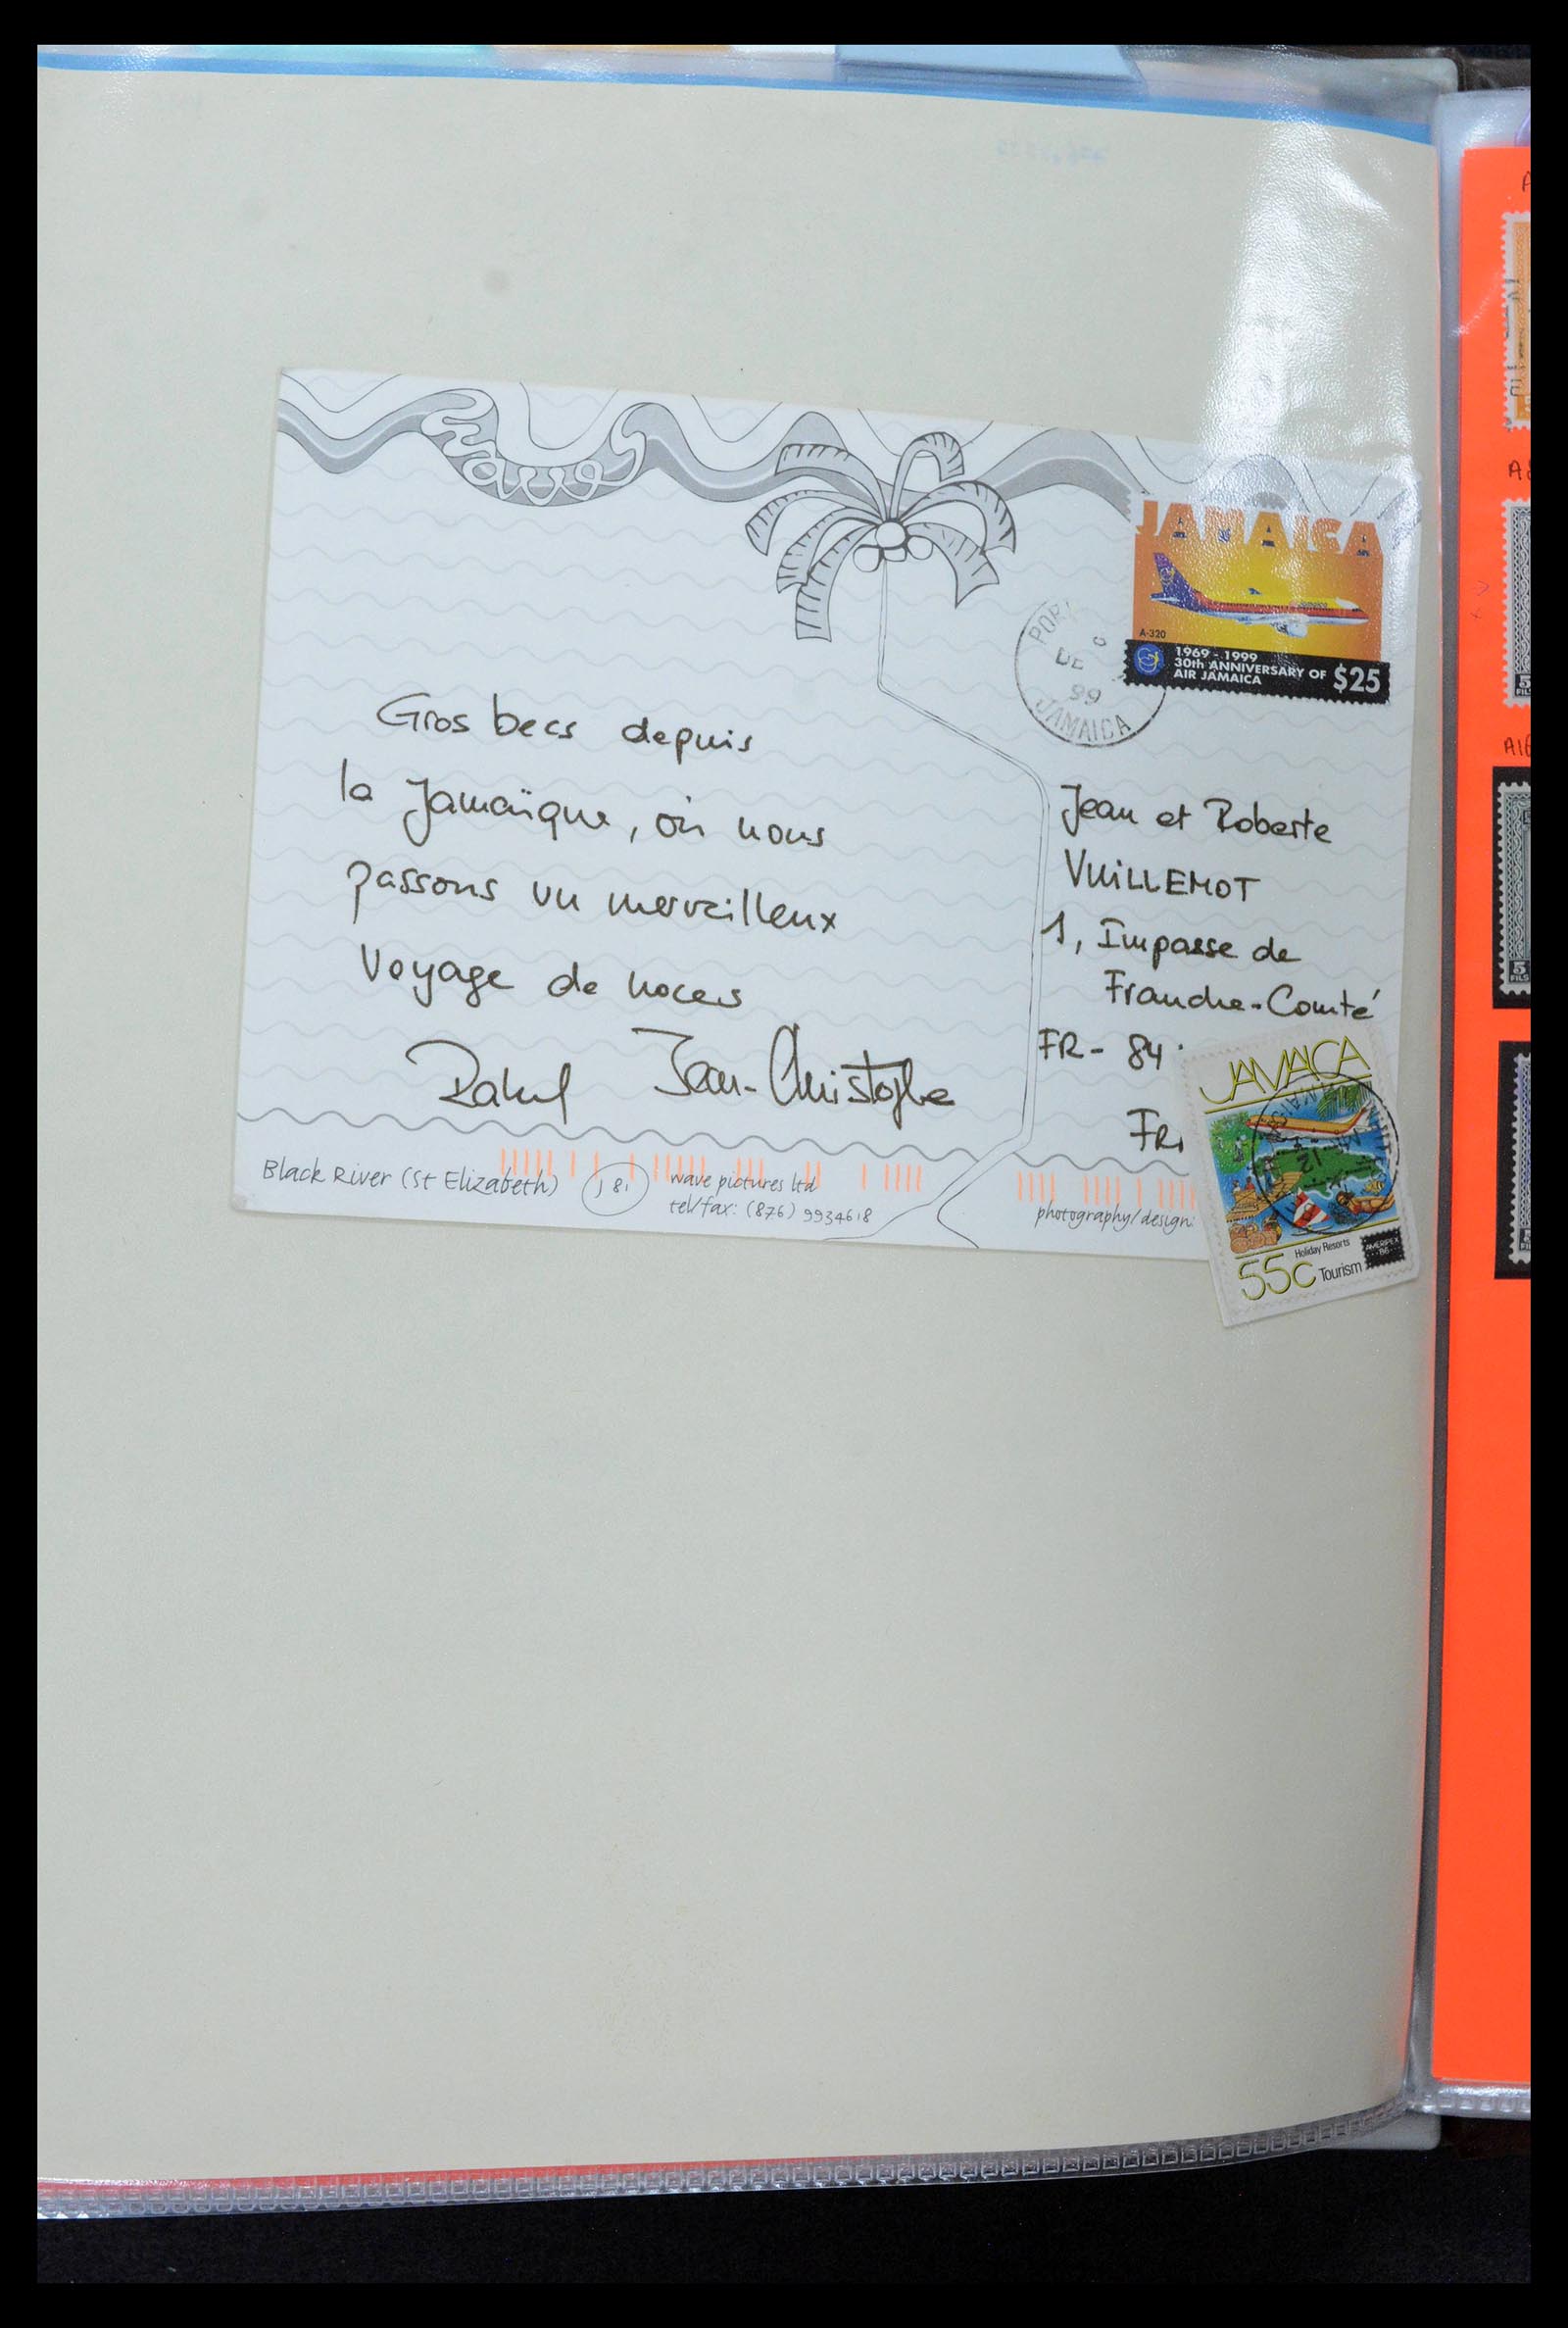 waves
JAMAICA
A-320
1969 - 1999
30th ANNIVERSARY OF
AIR JAMAICA
$25
DE
99
JAMAICA
Gros becs depuis
la Jamaïque, où nous
passons un merveilleux
voyage de noces
Jean-Christophe
Jean et Roberte
VUILLEMOT
1, Impasse de
Franche-Comté
FR - 84
JAMAICA
Holiday Resorts
55c Tourism
AMERIPEX
86
Black River (St Elizabeth)
J 81
wave pictures ltd
tel/fax: (876) 9934618
photography/design: